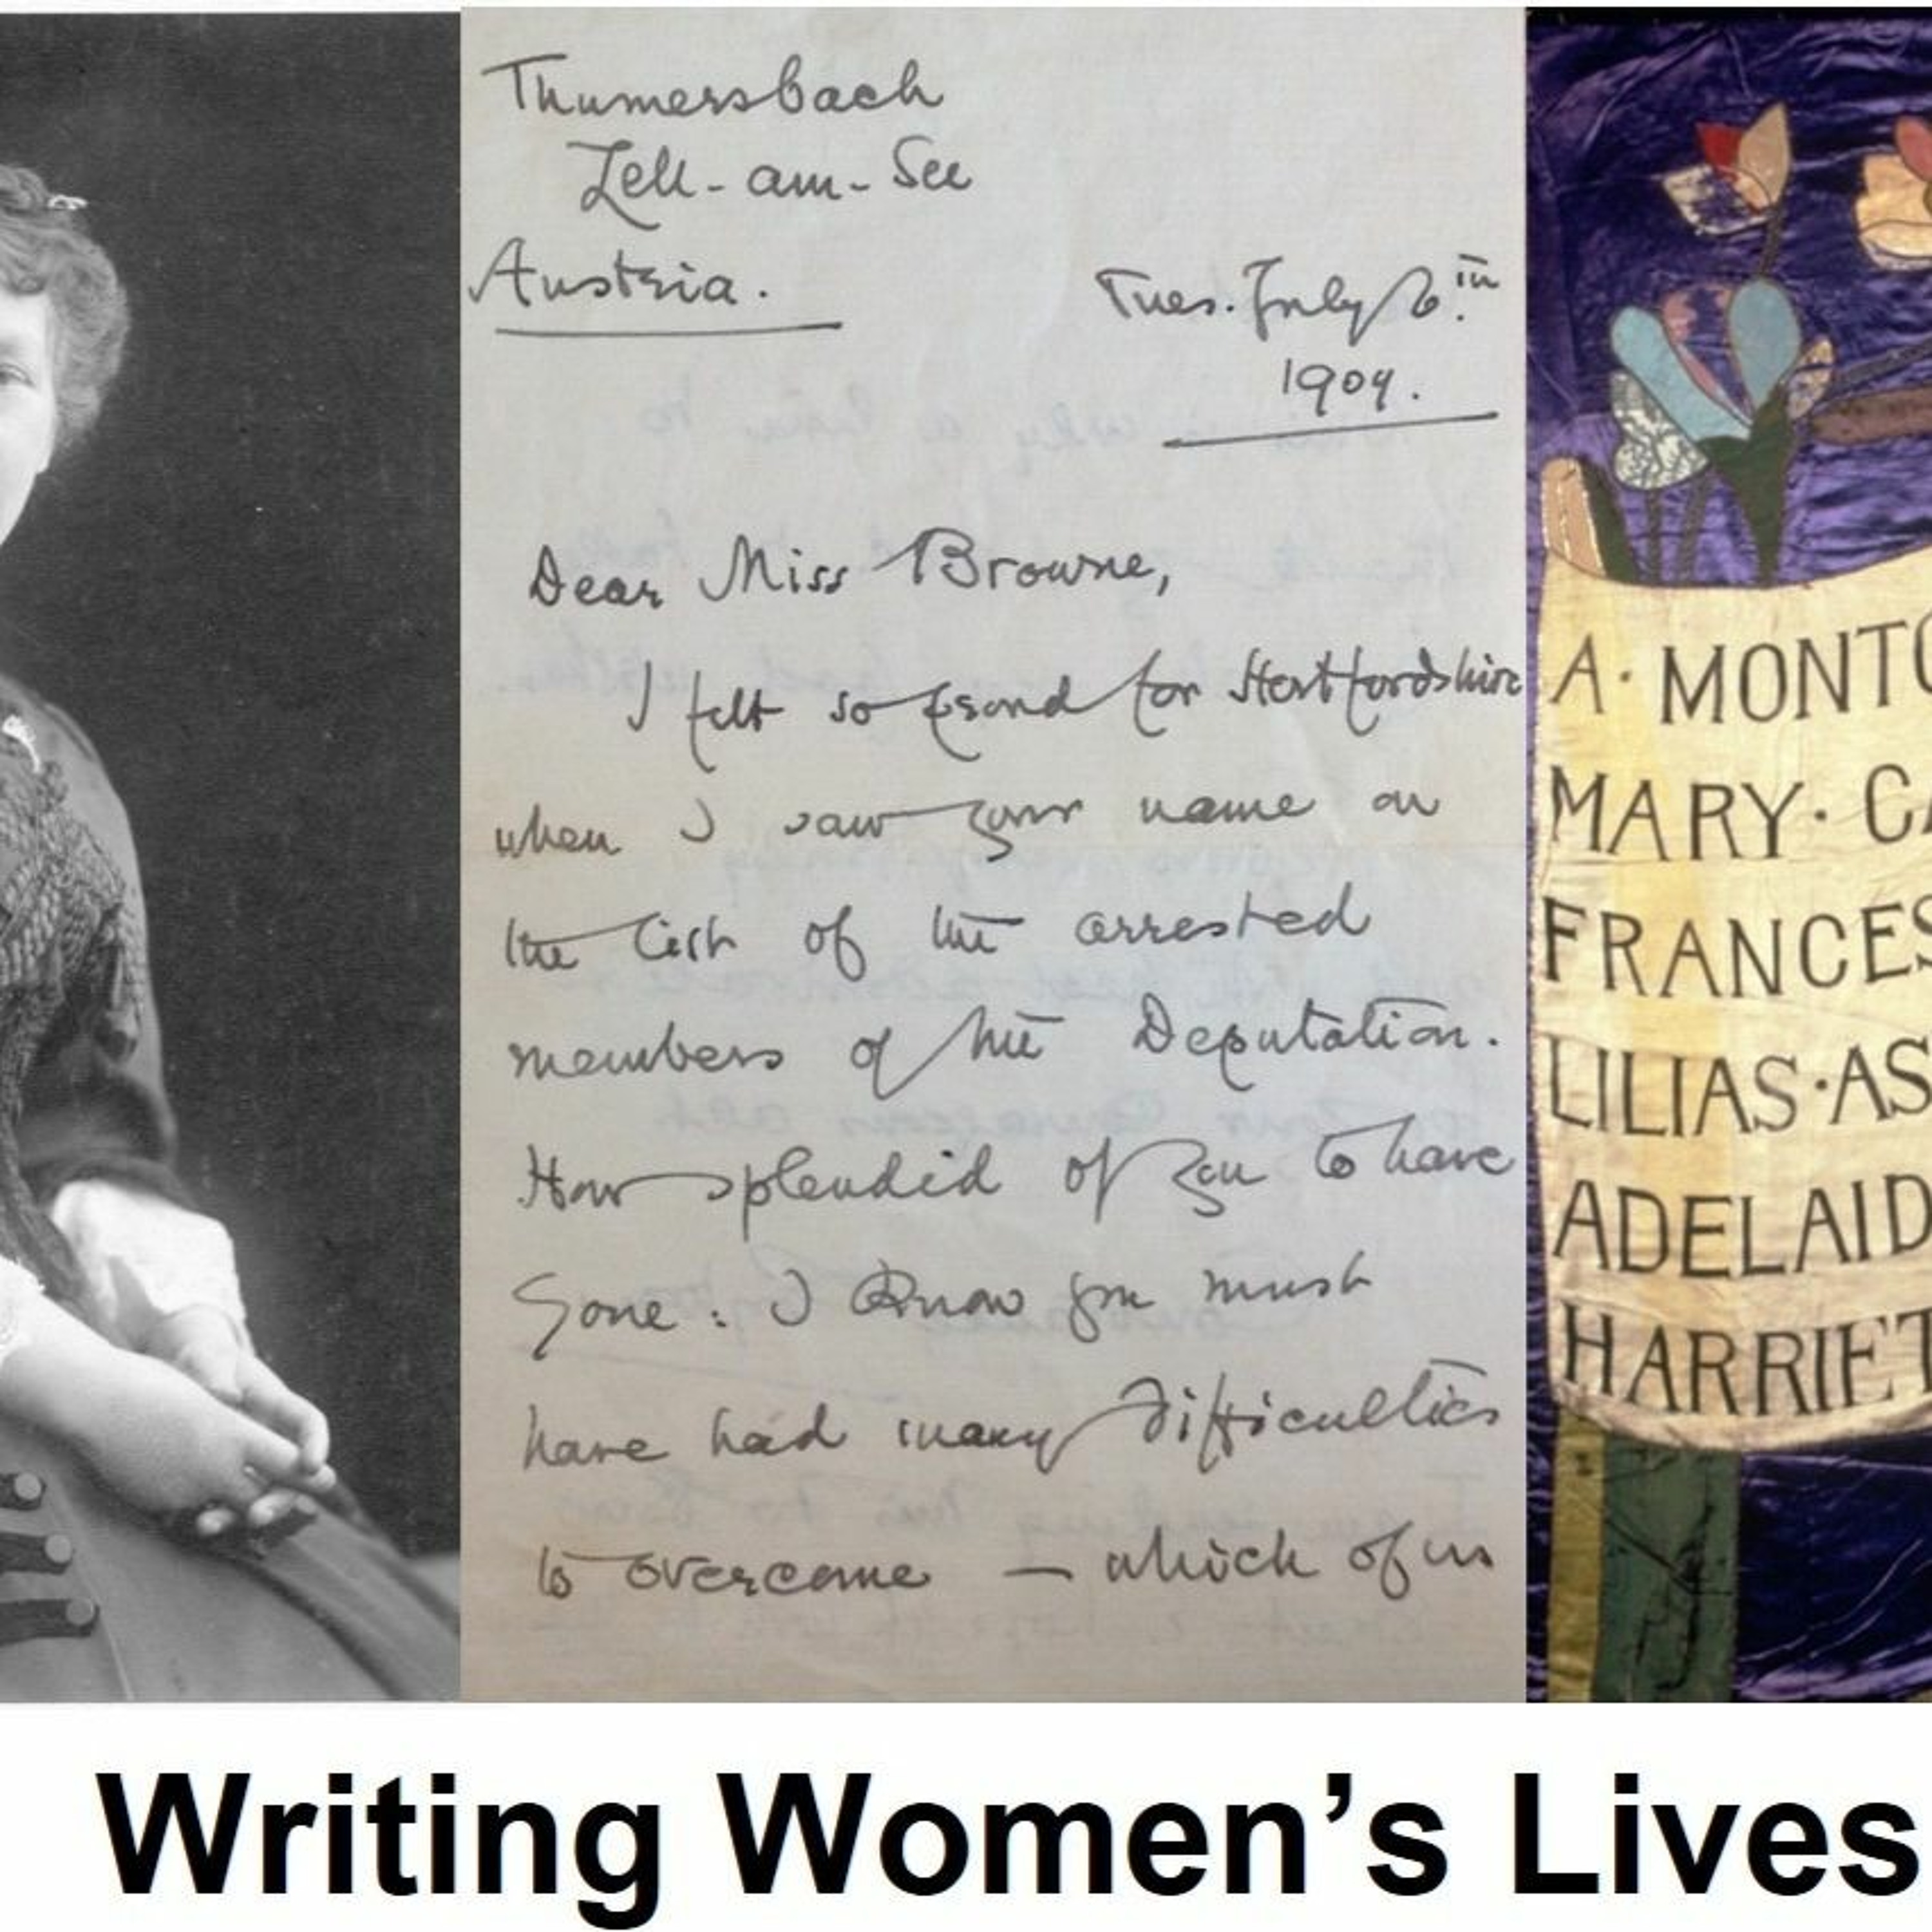 Thumersbach
Zell-am-See
Austria.
Tues. July 6.th
1909.
Dear Miss Browne,
I felt so proud for Hertfordshire
when I saw your name on
the list of the arrested
members of the Deputation.
How splendid of you to have
gone: I know you must
have had many difficulties
to overcome — which of us
A. MONTG
MARY. CA
FRANCES
LILIAS. AS
ADELAID
HARRIET
Writing Women’s Lives